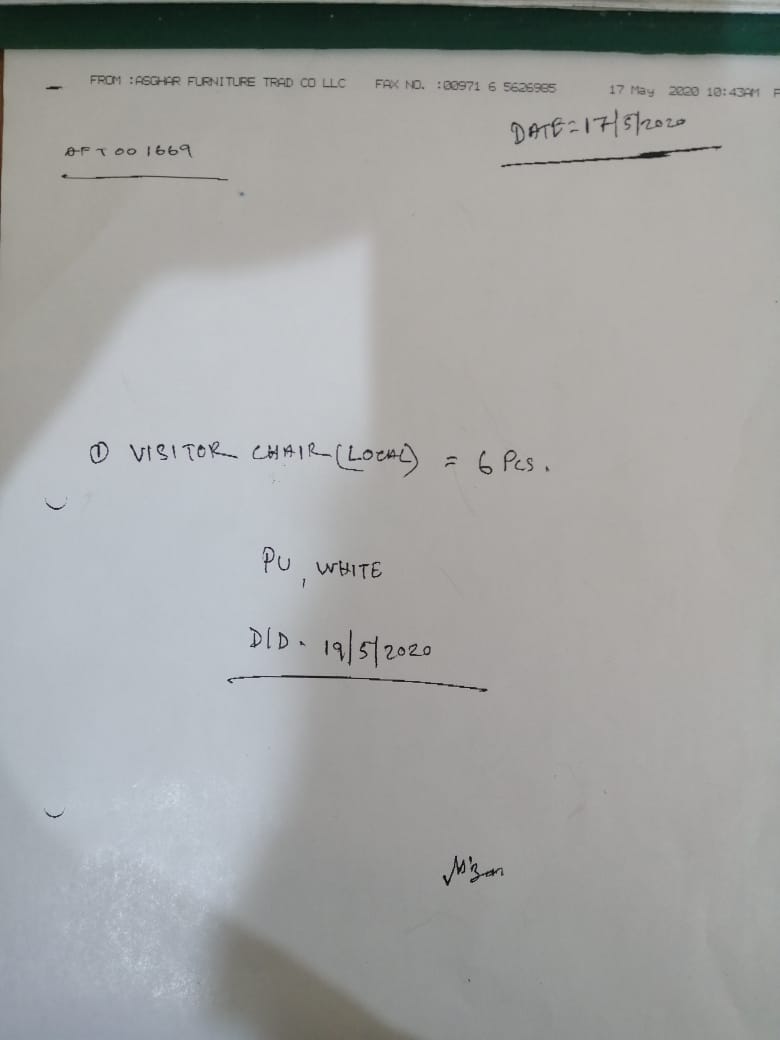 FROM :ASGHAR FURNITURE TRAD CO LLC FAX NO. :00971 6 5626985 17 May 2020 10:43AM P
DATE=17/5/2020
AFT001669
① VISITOR CHAIR (LOCAL) = 6 Pcs.
PU, WHITE
D/D. 19/5/2020